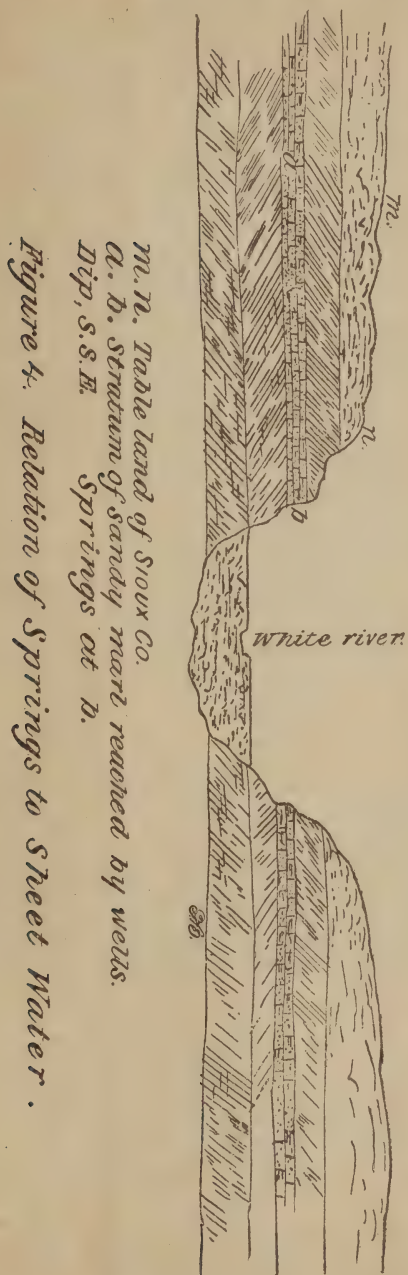 m.
n.
a
b
White river.
m.n. Table land of Sioux Co.
a.b. Stratum of sandy marl reached by wells.
Dip, S.S.E. Springs at b.
Figure 4. Relation of Springs to Sheet Water.